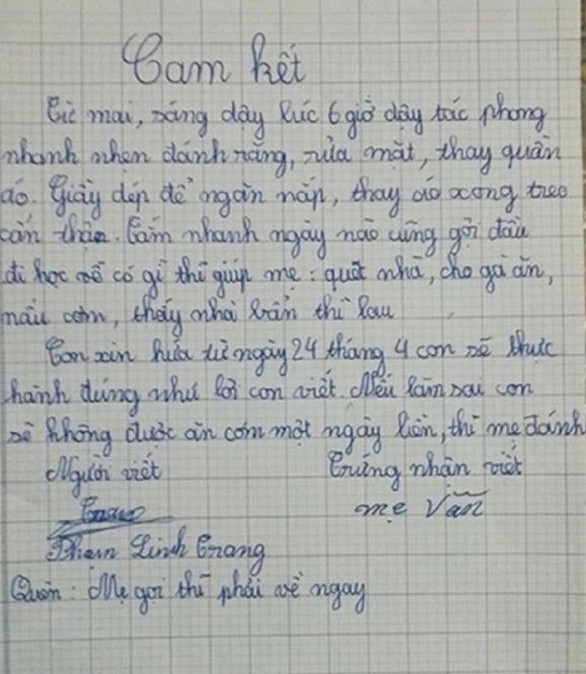 Cam kết
Từ mai, sáng dậy lúc 6 giờ dậy tác phong
nhanh nhẹn đánh răng, rửa mặt, thay quần
áo. Giầy dép để ngăn nắp, thay áo xong treo
cẩn thận. Tắm nhanh ngày nào cũng gội đầu
đi học về có gì thì giúp mẹ: quét nhà, cho gà ăn,
nấu cơm, thấy nhà bẩn thì lau
Con xin hứa từ ngày 24 tháng 4 con sẽ thực
hành đúng như lời con viết. Nếu làm sai con
sẽ không được ăn cơm một ngày liền, thì mẹ đánh
Người viết Trứng nhận viết
Trang mẹ Vân
Phạm Linh Trang
Quên: Mẹ gọi thì phải về ngay